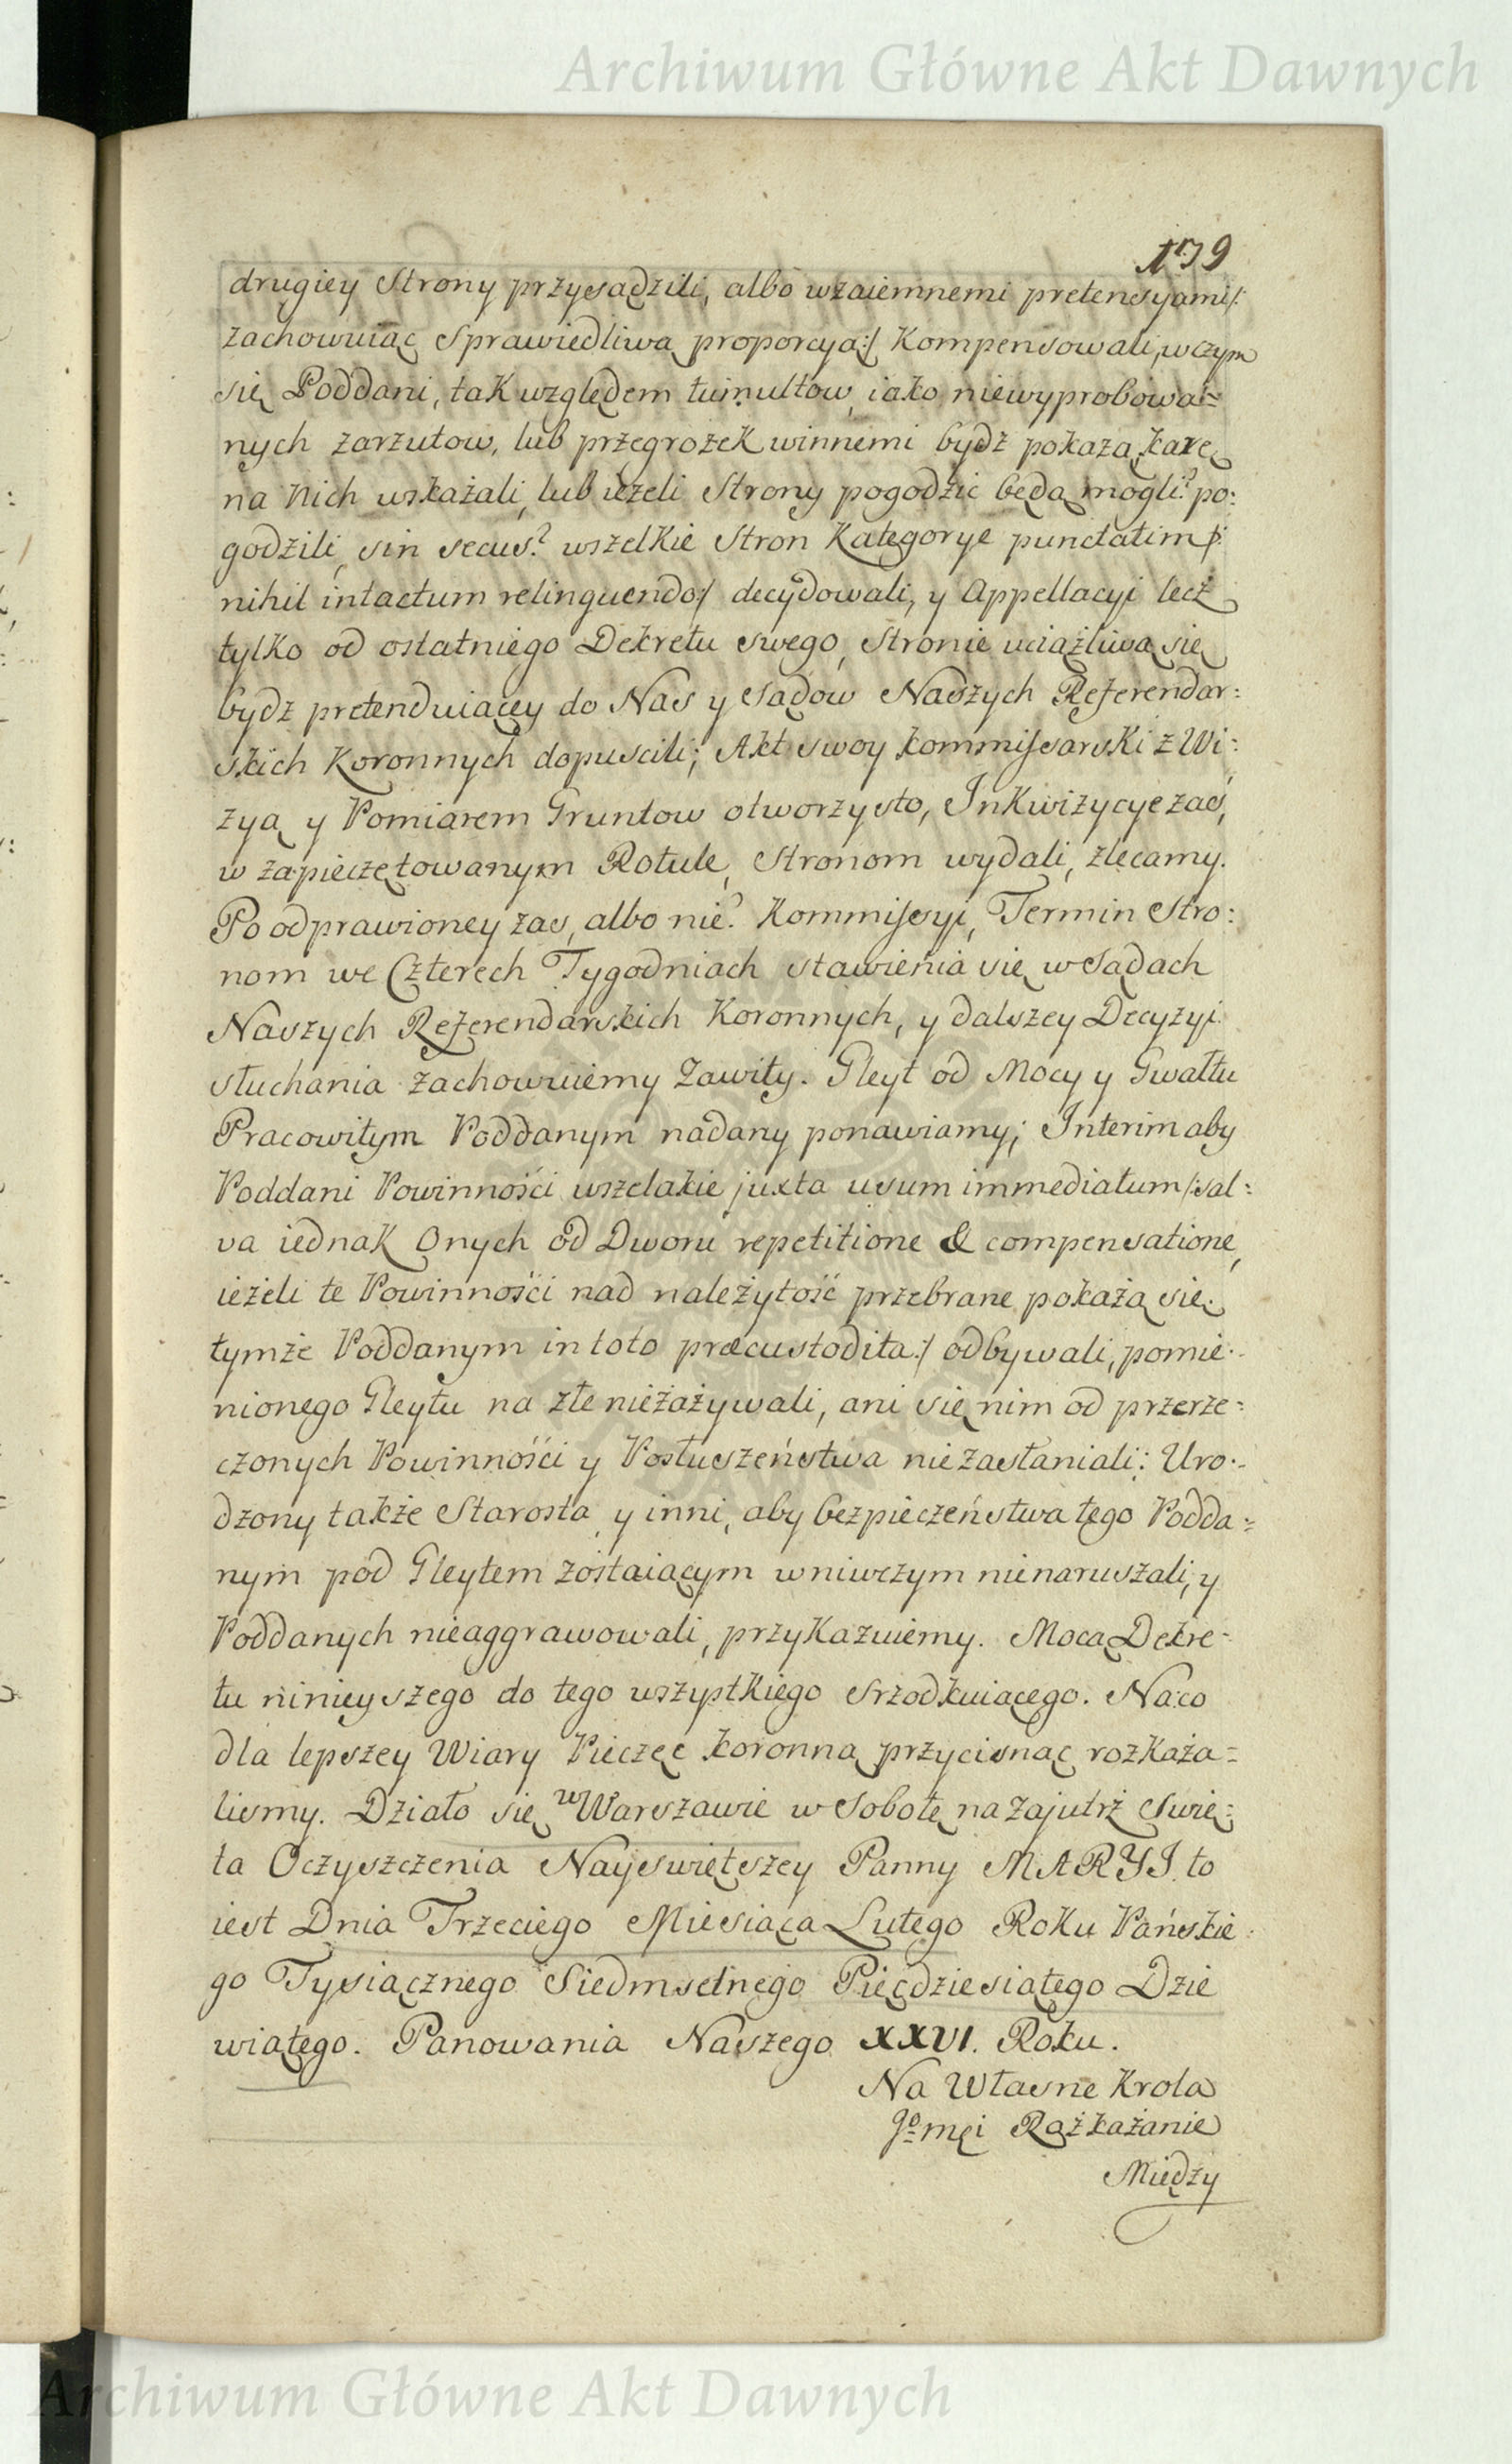 Archiwum Główne Akt Dawnych
179
drugiey Strony przysądzili, albo wzaiemnemi pretensyami/:
zachowuiąc Sprawiedliwą proporcyą:/ Kompensowali, w czym
się Poddani, tak względem tumultow, iako niewyprobowa=
nych zarzutow, lub przegrożek winnemi bydz pokażą, karę
na nich wskażali, lub ieżeli Strony pogodzić będą mogli? po:
godzili, sin secus? wszelkie Stron Kategorye punctatim /:
nihil intactum relinquendo:/ decydowali, y Appellacyi lecz
tylko od ostatniego Dekretu swego, Stronie uciążliwą się
bydz pretenduiącey do Nas y Sądow Naszych Referendar:
skich Koronnych dopuscili; Akt swoy kommissarski z Wi:
zyą y Pomiarem Gruntow otworzysto, Inkwizycye zaś,
w zapieczętowanym Rotule, Stronom wydali, zlecamy.
Po odprawioney zas, albo nie? Kommissyi, Termin Stro:
nom we Czterech Tygodniach stawienia się w Sądach
Naszych Referendarskich Koronnych, y dalszey Decyzyi
słuchania zachowuiemy Zawity. Gleyt od Mocy y Gwałtu
Pracowitym Poddanym nadany ponawiamy; Interim aby
Poddani Powinnosći wszelakie juxta usum immediatum /:sal=
va iednak Onych od Dworu repetitione & compensatione,
ieżeli te Powinnosći nad należytość przebrane pokażą się
tymże Poddanym in toto præcustodita:/ odbywali, pomie=
nionego Gleytu na złe nieżażywali, ani się nim od przerze=
czonych Powinnosći y Posłuszeństwa niezasłaniali: Uro=
dzony także Starosta y inni, aby bezpieczeństwa tego Podda=
nym pod Gleytem zostaiącym w niwczym nienaruszali, y
Poddanych nieaggrawowali, przykazuiemy. Mocą Dekre=
tu ninieyszego do tego wszystkiego srzodkuiącego. Na co
dla lepszey Wiary Pieczęc koronną przycisnąc rozkaża=
lismy. Działo się w Warszawie w Sobotę nazajutrz Swię=
ta Oczyszczenia Nayswiętszey Panny MARYI. to
iest Dnia Trzeciego Miesiąca Lutego Roku Pańskie
go Tysiącznego Siedmsetnego Pięcdziesiątego Dzie
wiątego. Panowania Naszego XXVI. Roku.
Na Własne Krola
Jº mci Rozkażanie
Między
Archiwum Główne Akt Dawnych